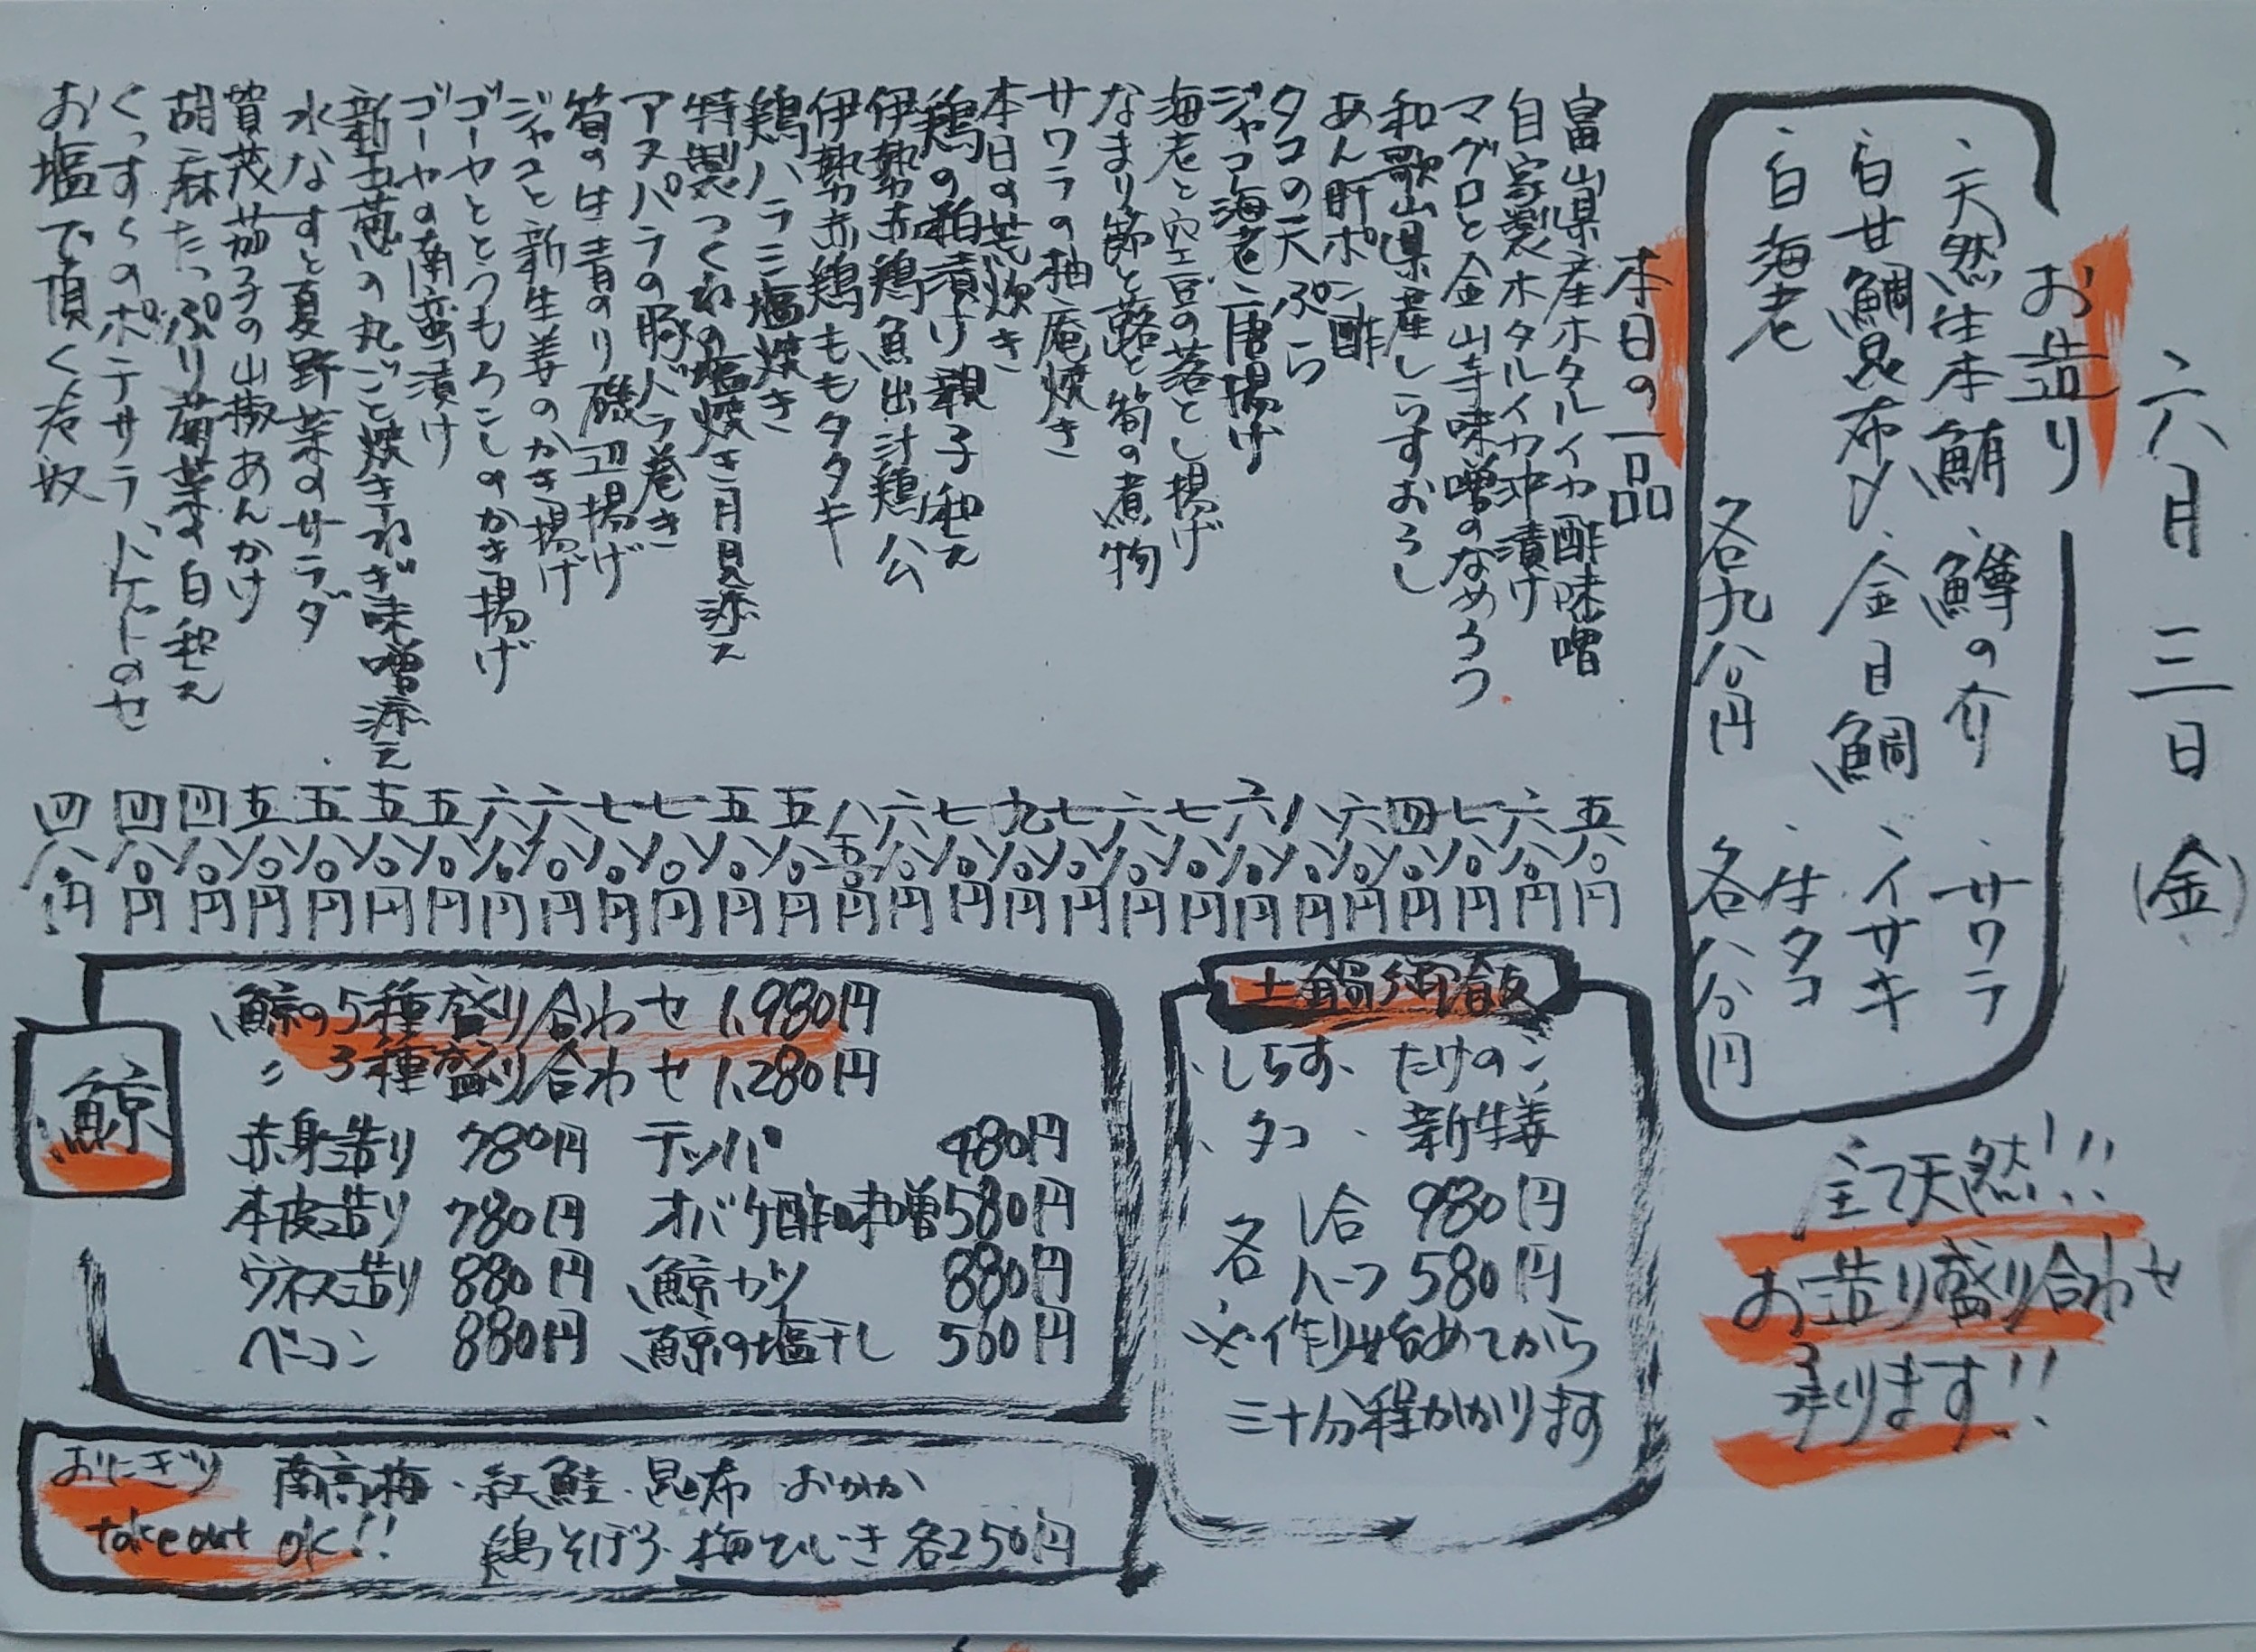 六月三日(金)
お造り
、天然生本鮪、鱒の介
、白甘鯛昆布〆、金目鯛
、白海老
各九八〇円
、サワラ
、イサキ
、生タコ
各八八〇円
全て天然!!!
お造り盛り合わせ
承ります!!
本日の一品
富山県産ホタルイカ酢味噌 五八〇円
自家製ホタルイカ沖漬け 六八〇円
マグロと金山寺味噌のなめろう 七八〇円
和歌山県産しらすおろし 四八〇円
あん肝ポン酢 六八〇円
タコの天ぷら 八八〇円
ジャコ海老唐揚げ 六八〇円
海老と空豆の落とし揚げ 七八〇円
なまり節と蕗と筍の煮物 六八〇円
サワラの柚庵焼き 七八〇円
本日の荒炊き 九八〇円
鶏の粕漬け親子和え 七八〇円
伊勢赤鶏魚出汁鶏公 六八〇円
伊勢赤鶏ももタタキ 八五〇円
鶏ハラミ塩焼き 五八〇円
特製つくねの塩焼き月見添え 五八〇円
アスパラの豚バラ巻き 七八〇円
筍の生青のり磯辺揚げ 七八〇円
ジャコと新生姜のかき揚げ 六八〇円
ゴーヤととうもろこしのかき揚げ 六八〇円
ゴーヤの南蛮漬け 五八〇円
新玉葱の丸ごと焼きねぎ味噌添え 五八〇円
水なすと夏野菜のサラダ 五八〇円
賀茂茄子の山椒あんかけ 五八〇円
胡麻たっぷり菊菜の白和え 四八〇円
くっすくのポテサラ トケットのせ 四八〇円
お塩で頂く冷奴 四八〇円
土鍋御飯
、しらす、たけのこ
、タコ、新生姜
各 1合 980円
ハーフ 580円
※作り始めてから
三十分程かかります
鯨
鯨の5種盛り合わせ 1,980円
〃 3種盛り合わせ 1,280円
赤身造り 780円 テッパ 480円
本皮造り 780円 オバケ酢味噌 580円
ウネス造り 880円 鯨カツ 880円
ベーコン 880円 鯨の塩干し 560円
おにぎり 南高梅・紅鮭・昆布 おかか
take out OK!! 鶏そぼろ・梅ひじき 各250円